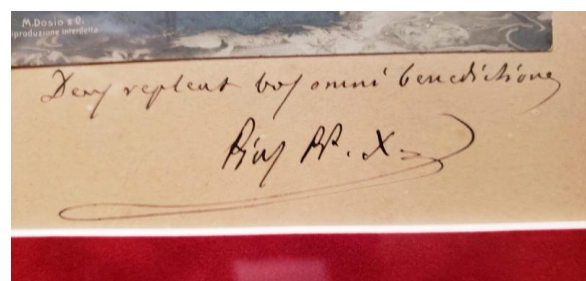 M. Dosio e C.
riproduzione interdetta
Deus repleat vos omni benedictione
Pius PP. X.